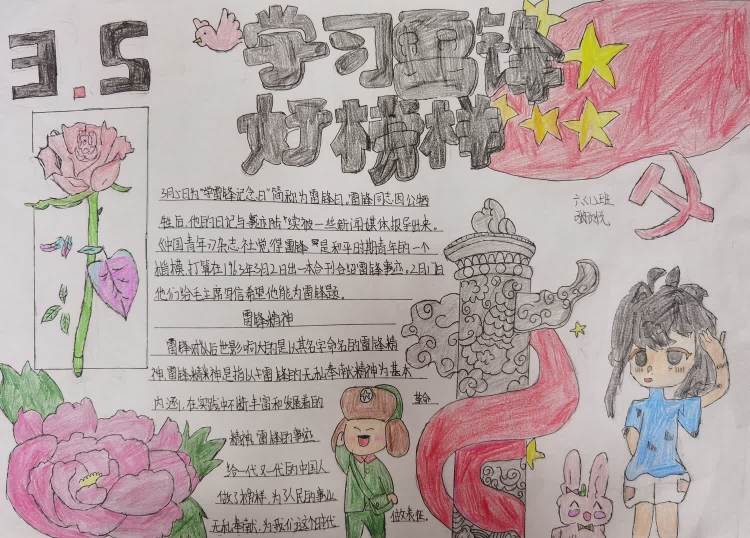 3.5
学习雷锋
好榜样
六(1)班
3月5日为"学雷锋纪念日"简称为雷锋日。雷锋同志因公牺
牲后,他的日记与事迹陆续被一些新闻媒体报导出来。
《中国青年》杂志社觉得雷锋是和平时期青年的一个
楷模,打算在1963年3月2日出一本合刊介绍雷锋事迹,2月17日
他们给毛主席写信希望他能为雷锋题。
雷锋精神
雷锋对以后世影响大的是以其名字命名的雷锋精
神,雷锋精神是指以雷锋的无私奉献精神为基本
内涵,在实践中不断丰富和发展着的 革命
精神,雷锋的事迹
给一代又一代的中国人
做了榜样,为人民的事业
无私奉献,为我们这个时代 做表征。